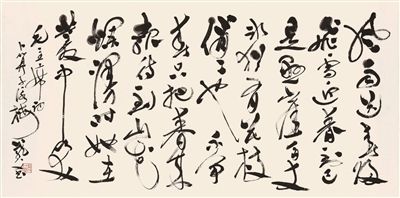 风雨送春归
飞雪迎春到已
是悬崖百丈
冰犹有花枝
俏俏也不争
春只把春来
报待到山花
烂漫时她在
丛中笑
毛主席词
卜算子咏梅